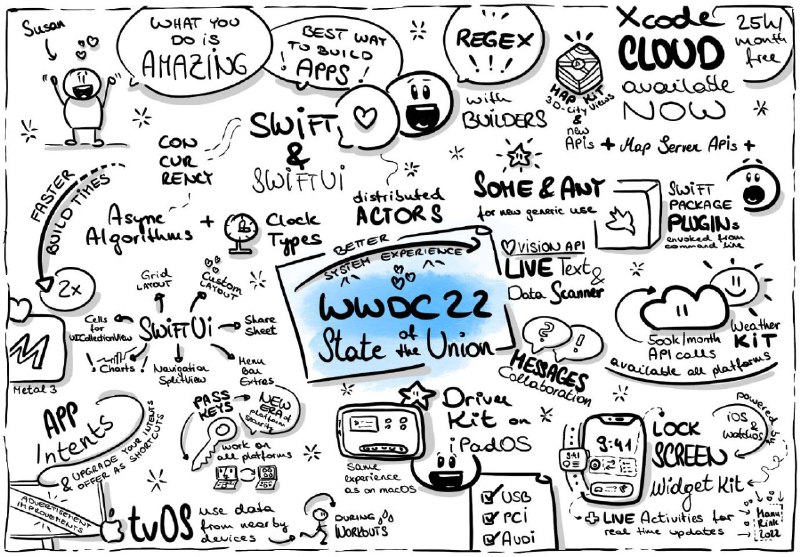 Susan
WHAT YOU
DO IS
AMAZING
BEST WAY
TO BUILD
! APPS !
REGEX
!!!
with
BUILDERS
MAP KIT
3D-City Views
&
new
APIs + Map Server Apis +
Xcode
CLOUD
available
NOW
25h/
month
free
SWIFT
&
SWIFTUi
CON
CUR
RENCY
distributed
ACTORS
SOME & ANY
for new generic use
SWIFT
PACKAGE
PLUGINs
invoked from
command line
FASTER
BUILD TIMES
2x
Async
Algorithms + Clock
Types
BETTER
SYSTEM EXPERIENCE
WWDC 22
State of the Union
VISION API
LIVE Text
&
Data Scanner
500k/month
API calls
Weather
KIT
available all platforms
Grid
LAYOUT
Custom
LAYOUT
Cells
for
UICollectionView
SWIFTUi
Share
Sheet
! Charts !
Navigation
SplitView
Menu
Bar
Extras
M
Metal 3
? !
MESSAGES
Collaboration
APP
Intents
& UPGRADE YOUR INTENTS
OFFER AS SHORTCUTS
PASS
KEYS
NEW
ERA of
platform
security
work on
all platforms
Driver
Kit on
iPadOS
Same
experience
as on macOS
USB
PCi
AUDi
9:41
9:41
LOCK
SCREEN
Widget Kit
powered
iOS &
WatchOS
+ LIVE Activities for
real time updates
ADVERTISEMENT
IMPROVEMENTS
tvOS
use data
from nearby
devices
DURING
WORKOUTS
Manu
Rink
2022